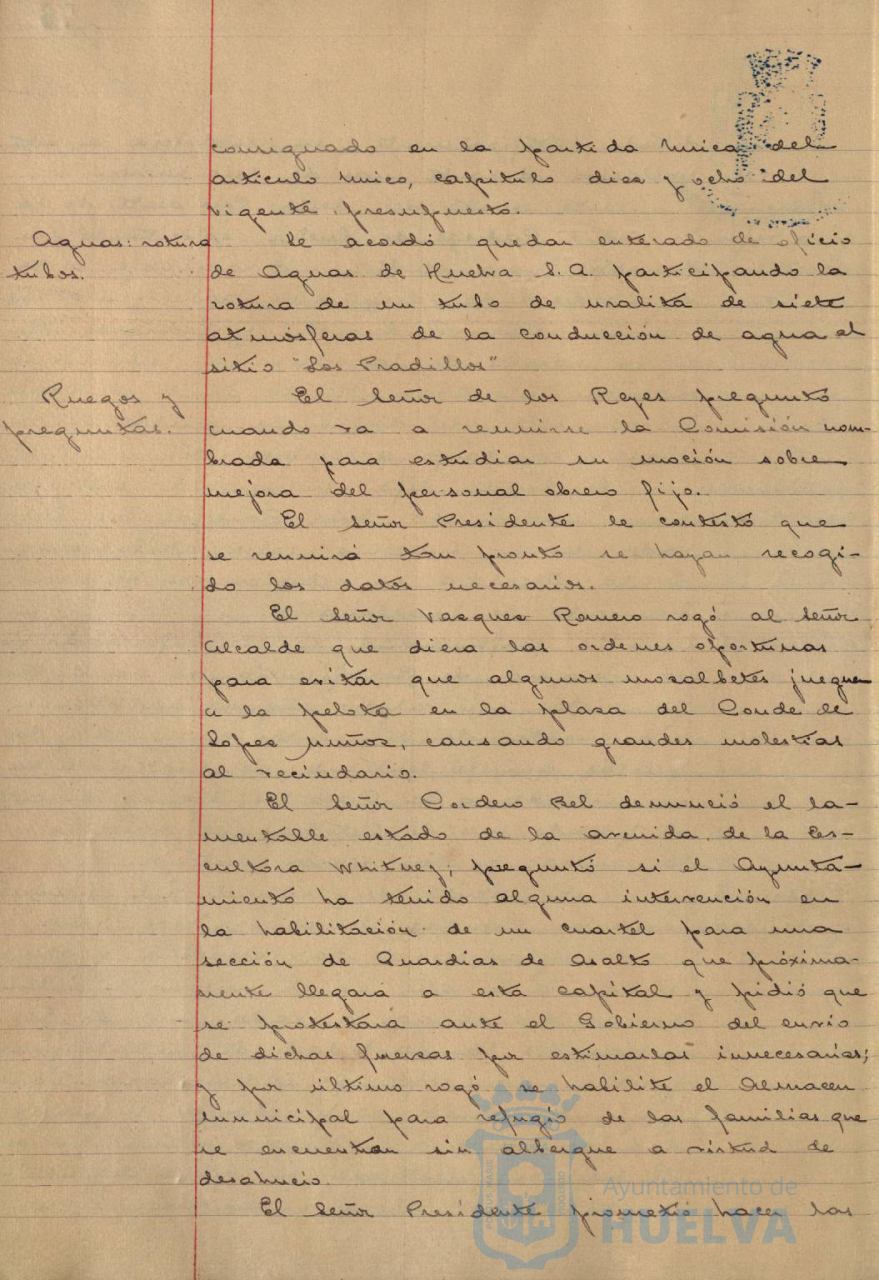 consignado en la partida unica del
articulo unico, capitulo diez y ocho del
vigente presupuesto.
Aguas: rotura
tubos.
Se acordó quedar enterado de oficio
de Aguas de Huelva S.A. participando la
rotura de un tubo de uralita de siete
atmósferas de la conducción de agua al
sitio "Los Pradillos"
Ruegos y
preguntas.
El Señor de los Reyes preguntó
cuando va a reunirse la Comisión nom-
brada para estudiar su moción sobre
mejora del personal obrero fijo.
El señor Presidente le contestó que
se reunirá tan pronto se hayan recogi-
do los datos necesarios.
El Señor Vazquez Romero rogó al Señor
Alcalde que diera las ordenes oportunas
para evitar que algunos mozalbetes jueguen
a la pelota en la plaza del Conde de
Lopez Muñoz, causando grandes molestias
al vecindario.
El Señor Cordero Bel denunció el la-
mentable estado de la avenida de la Es-
cultora Whitney; preguntó si el Ayunta-
miento ha tenido alguna intervención en
la habilitación de un cuartel para una
sección de Guardias de Asalto que próxima-
mente llegará a esta capital y pidió que
se protestara ante el Gobierno del envio
de dichas fuerzas por estimarlas innecesarias;
y por último rogó se habilite el Almacen
municipal para refugio de las familias que
se encuentran sin albergue a virtud de
desahucio.
El Señor Presidente prometió hacer las
Ayuntamiento de
HUELVA